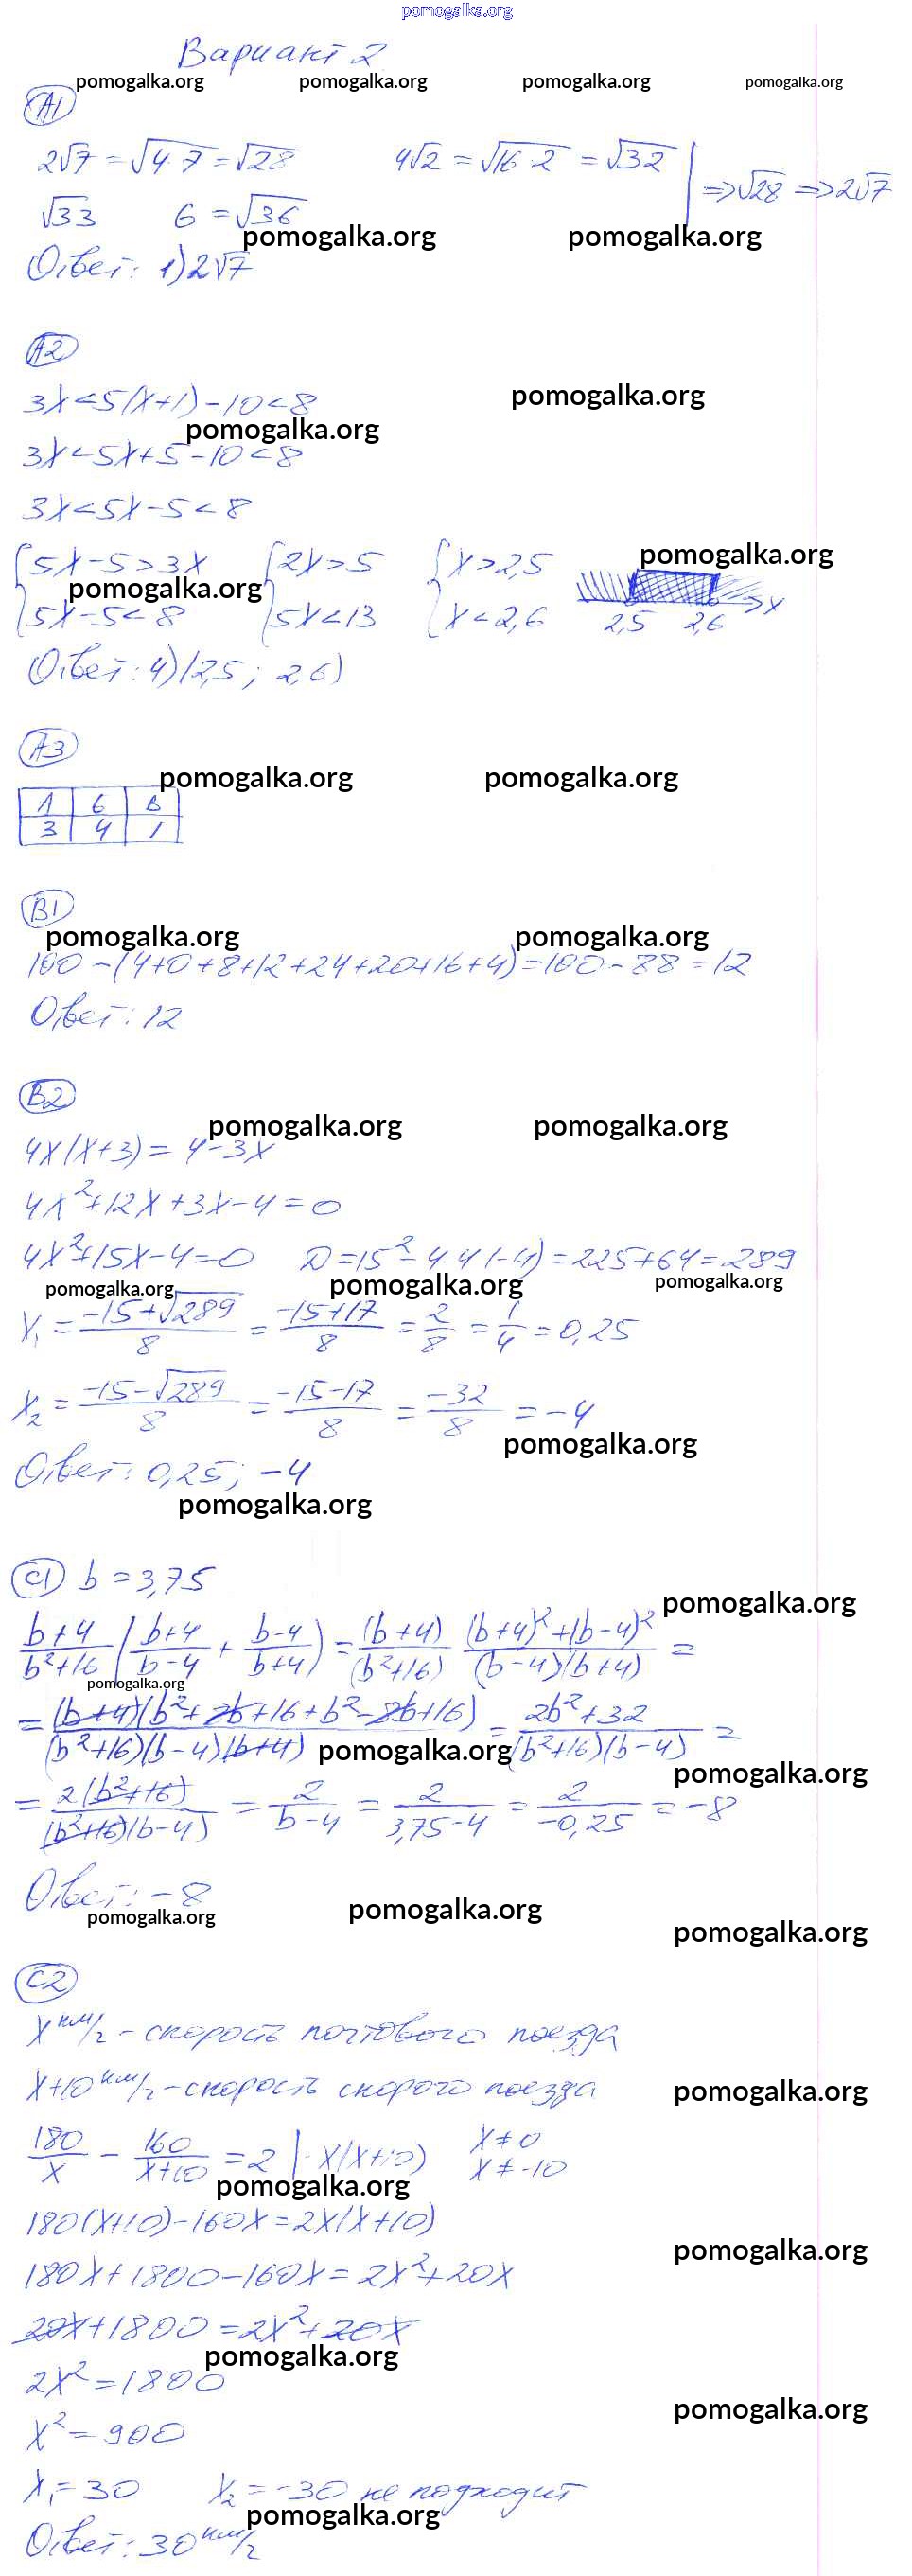 pomogalka.org
Вариант 2
pomogalka.org pomogalka.org pomogalka.org pomogalka.org
А1
2√7 = √4·7 = √28 4√2 = √16·2 = √32 | ⇒ √28 ⇒ 2√7
√33 6 = √36
pomogalka.org pomogalka.org
Ответ: 1) 2√7
А2
3x < 5(x+1) - 10 < 8 pomogalka.org
pomogalka.org
3x < 5x + 5 - 10 < 8
3x < 5x - 5 < 8
{5x - 5 > 3x {2x > 5 {x > 2,5 pomogalka.org
pomogalka.org
{5x - 5 < 8 {5x < 13 {x < 2,6 2,5 2,6 x
Ответ: 4) (2,5; 2,6)
А3
pomogalka.org pomogalka.org
А Б В
3 4 1
В1
pomogalka.org pomogalka.org
100 - (4+0+8+12+24+20+16+4) = 100 - 88 = 12
Ответ: 12
В2
pomogalka.org pomogalka.org
4x(x+3) = 4 - 3x
4x² + 12x + 3x - 4 = 0
4x² + 15x - 4 = 0 D = 15² - 4·4·(-4) = 225 + 64 = 289
pomogalka.org pomogalka.org pomogalka.org
x₁ = (-15 + √289)/8 = (-15 + 17)/8 = 2/8 = 1/4 = 0,25
x₂ = (-15 - √289)/8 = (-15 - 17)/8 = -32/8 = -4
pomogalka.org
Ответ: 0,25; -4
pomogalka.org
С1 b = 3,75
pomogalka.org
(b+4)/(b²+16) ((b+4)/(b-4) + (b-4)/(b+4)) = (b+4)/(b²+16) · ((b+4)² + (b-4)²)/((b-4)(b+4)) =
pomogalka.org
= (b+4)(b² + 8b + 16 + b² - 8b + 16)/((b²+16)(b-4)(b+4)) = (2b² + 32)/((b²+16)(b-4)) =
pomogalka.org pomogalka.org
= 2(b²+16)/((b²+16)(b-4)) = 2/(b-4) = 2/(3,75-4) = 2/(-0,25) = -8
Ответ: -8
pomogalka.org pomogalka.org pomogalka.org
С2
x км/г - скорость почтового поезда
x+10 км/г - скорость скорого поезда pomogalka.org
180/x - 160/(x+10) = 2 | · x(x+10) x ≠ 0
x ≠ -10
pomogalka.org
180(x+10) - 160x = 2x(x+10)
pomogalka.org
180x + 1800 - 160x = 2x² + 20x
20x + 1800 = 2x² + 20x
pomogalka.org
2x² = 1800
pomogalka.org
x² = 900
x₁ = 30 x₂ = -30 не подходит
pomogalka.org
Ответ: 30 км/г